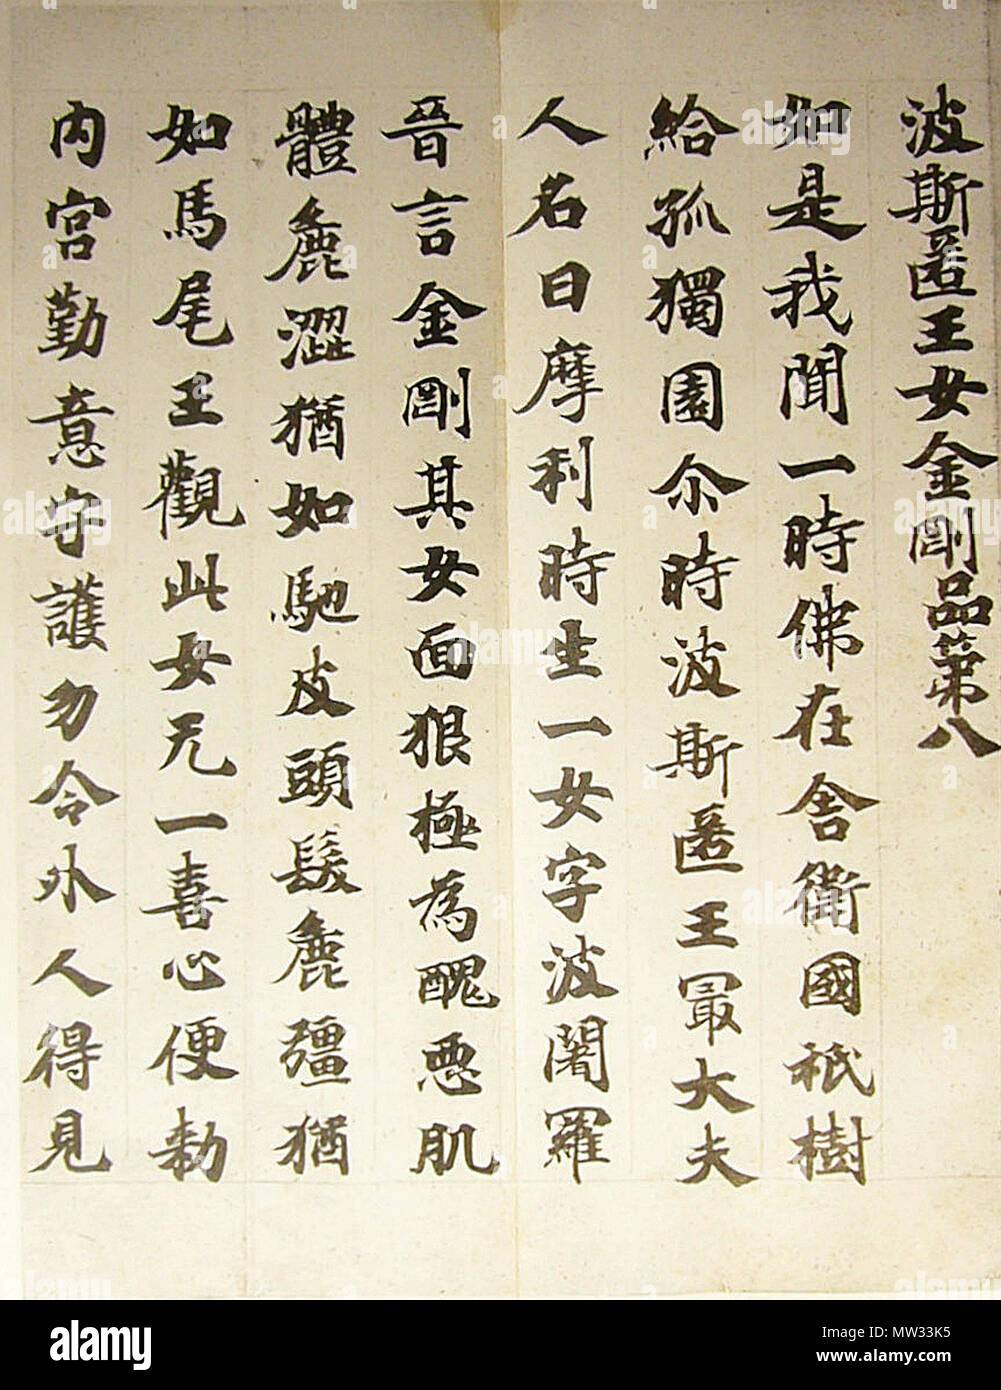 波斯匿王女金剛品第八
如是我聞一時佛在舍衛國祇樹
給孤獨園尒時波斯匿王冣大夫
人名曰摩利時生一女字波闍羅
晉言金剛其女面狠極為醜惡肌
體麁澀猶如駞皮頭髮麁彊猶
如馬尾王觀此女无一喜心便勑
内宮勤意守護勿令外人得見
alamy
Image ID: MW33K5
www.alamy.com